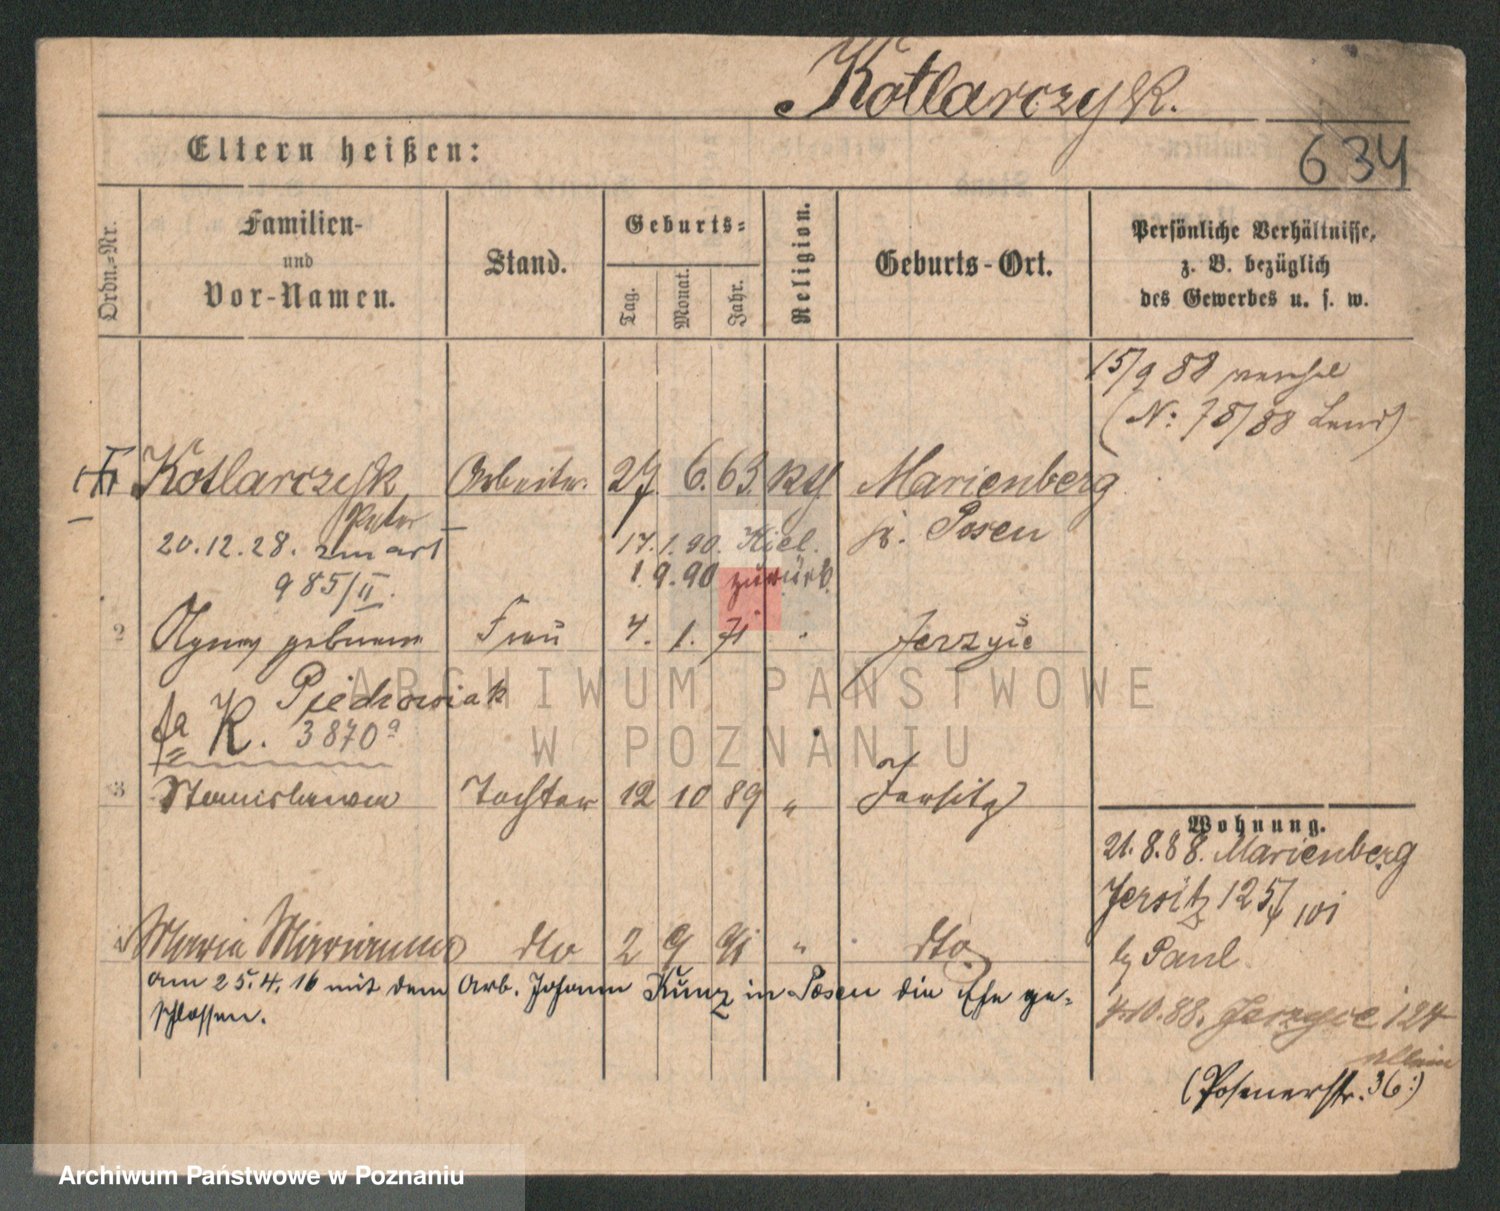 Kotlarczyk.
634
Eltern heißen:
Ordn.-Nr.
Familien-
und
Vor-Namen.
Stand.
Geburts-
Tag.
Monat.
Jahr.
Religion.
Geburts-Ort.
Persönliche Verhältnisse,
z. B. bezüglich
des Gewerbes u. s. w.
15/9 88
(N: 78/88
Kotlarczyk, Arbeiter 27. 6. 63. kth Marienberg
Peter
Posen
20.12.28. zmarł
17.1.90. Kiel.
985/II.
1.9.90 zurück
2 Agnes geborene Frau 4. 1. 71 " Jerzyce
Piechowiak
K. 3870a
3 Stanislawa Tochter 12 10 89 " Jersitz
Wohnung.
21.8.88. Marienberg
Jersitz 125/101
by Paul
4 Maria Marianna dto 2 9 91 " dto
am 25.4.16 mit dem Arb. Johann Kunz in Posen die Ehe ge-
schlossen.
4.10.88. Jerzyce 124
allein
(Posenerstr. 36.)
ARCHIWUM PAŃSTWOWE
W POZNANIU
Archiwum Państwowe w Poznaniu